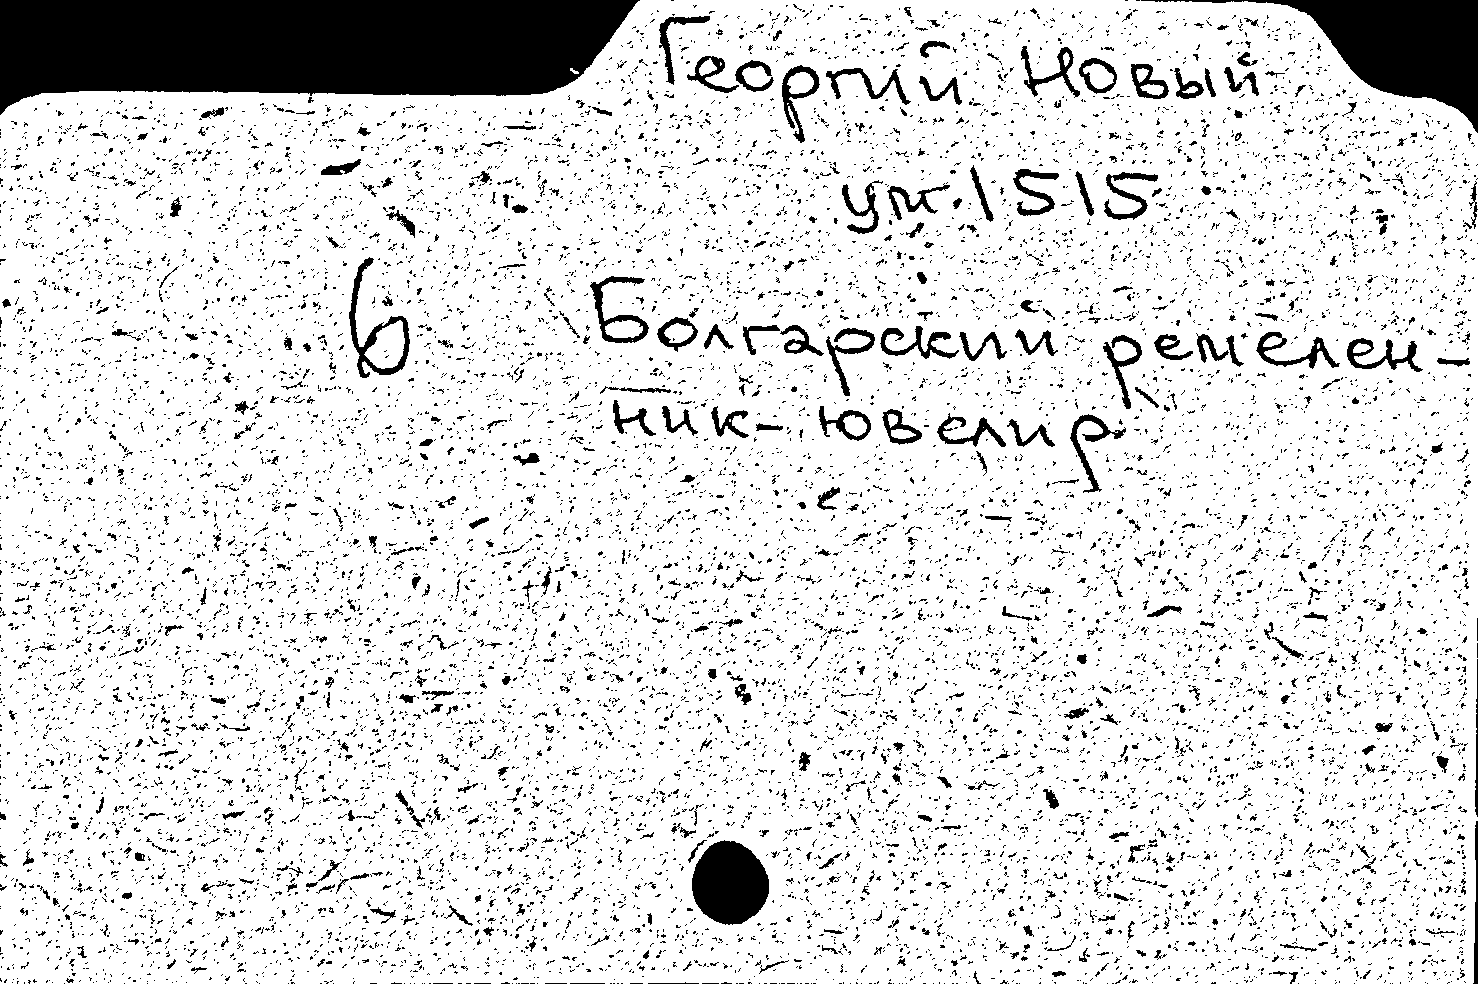 Георгий Новый
ум. 1515
6 Болгарский ремелен-
ник-ювелир